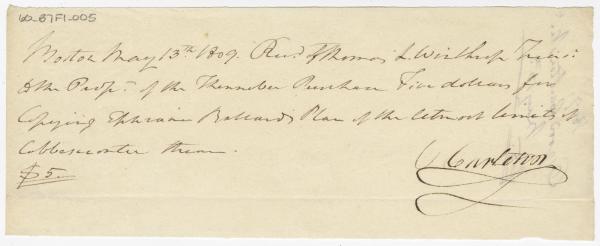 60_B7F1_005
Boston May 13th 1809. Recd of Thomas L. Winthrop Treasr
to the Propr of the Kennebec Purchase Five dollars for
Copying Ephraim Ballard's Plan of the utmost limits of
Cobbeseconte stream.
$5.
Carleton